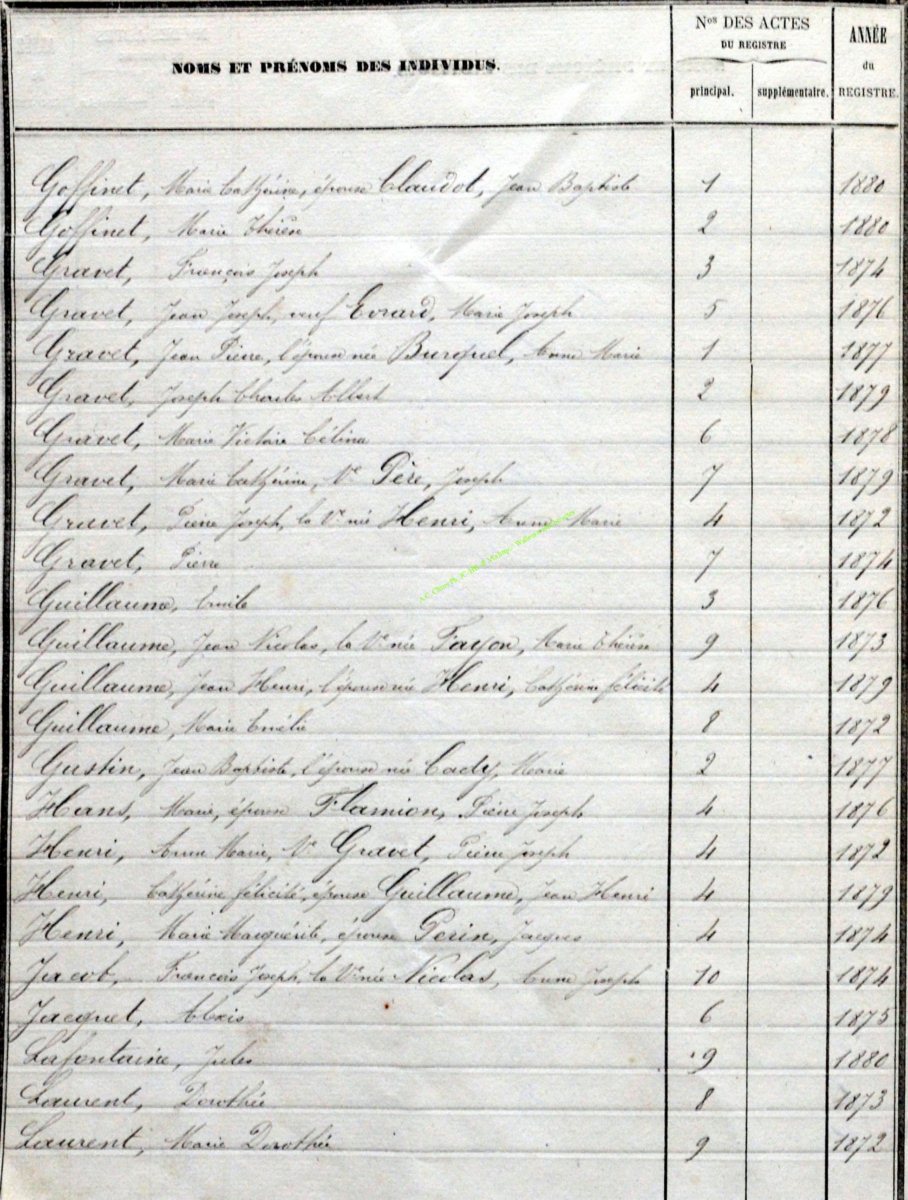 NOMS ET PRÉNOMS DES INDIVIDUS.
Nos DES ACTES DU REGISTRE
principal. supplémentaire.
ANNÉE du REGISTRE.
Goffinet, Marie Cathérine, épouse Claudot, Jean Baptiste 1 1880
Goffinet, Marie Thérèse 2 1880
Gravet, François Joseph 3 1874
Gravet, Jean Joseph, veuf Evrard, Marie Joseph 5 1876
Gravet, Jean Pierre, l'épouse née Burquel, Anne Marie 1 1877
Gravet, Joseph Charles Albert 2 1879
Gravet, Marie Victoire Célina 6 1878
Gravet, Marie Cathérine, Ve Père, Joseph 7 1879
Gravet, Pierre Joseph, la Ve née Henri, Anne Marie 4 1872
Gravet, Pierre 7 1874
Guillaume, Emile 3 1876
Guillaume, Jean Nicolas, la Ve née Fayon, Marie Thérèse 9 1873
Guillaume, Jean Henri, l'épouse née Henri, Cathérine félicité 4 1879
Guillaume, Marie Emélie 8 1872
Gustin, Jean Baptiste, l'épouse née Cady, Marie 2 1877
Hans, Marie, épouse Flamion, Pierre Joseph 4 1876
Henri, Anne Marie, Ve Gravet, Pierre Joseph 4 1872
Henri, Cathérine félicité, épouse Guillaume, Jean Henri 4 1879
Henri, Marie Marguérite, épouse Perin, Jacques 4 1874
Jacob, François Joseph, la Ve née Nicolas, Anne Joseph 10 1874
Jacquet, Alexis 6 1875
Lafontaine, Jules 9 1880
Laurent, Dorothée 8 1873
Laurent, Marie Dorothée 9 1872